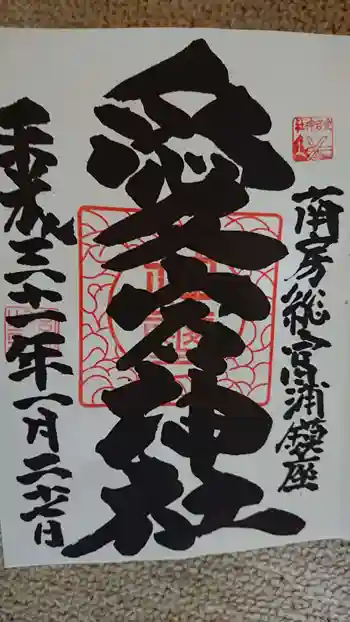 南房総富浦鎮座
愛宕神社
平成三十一年一月二十七日